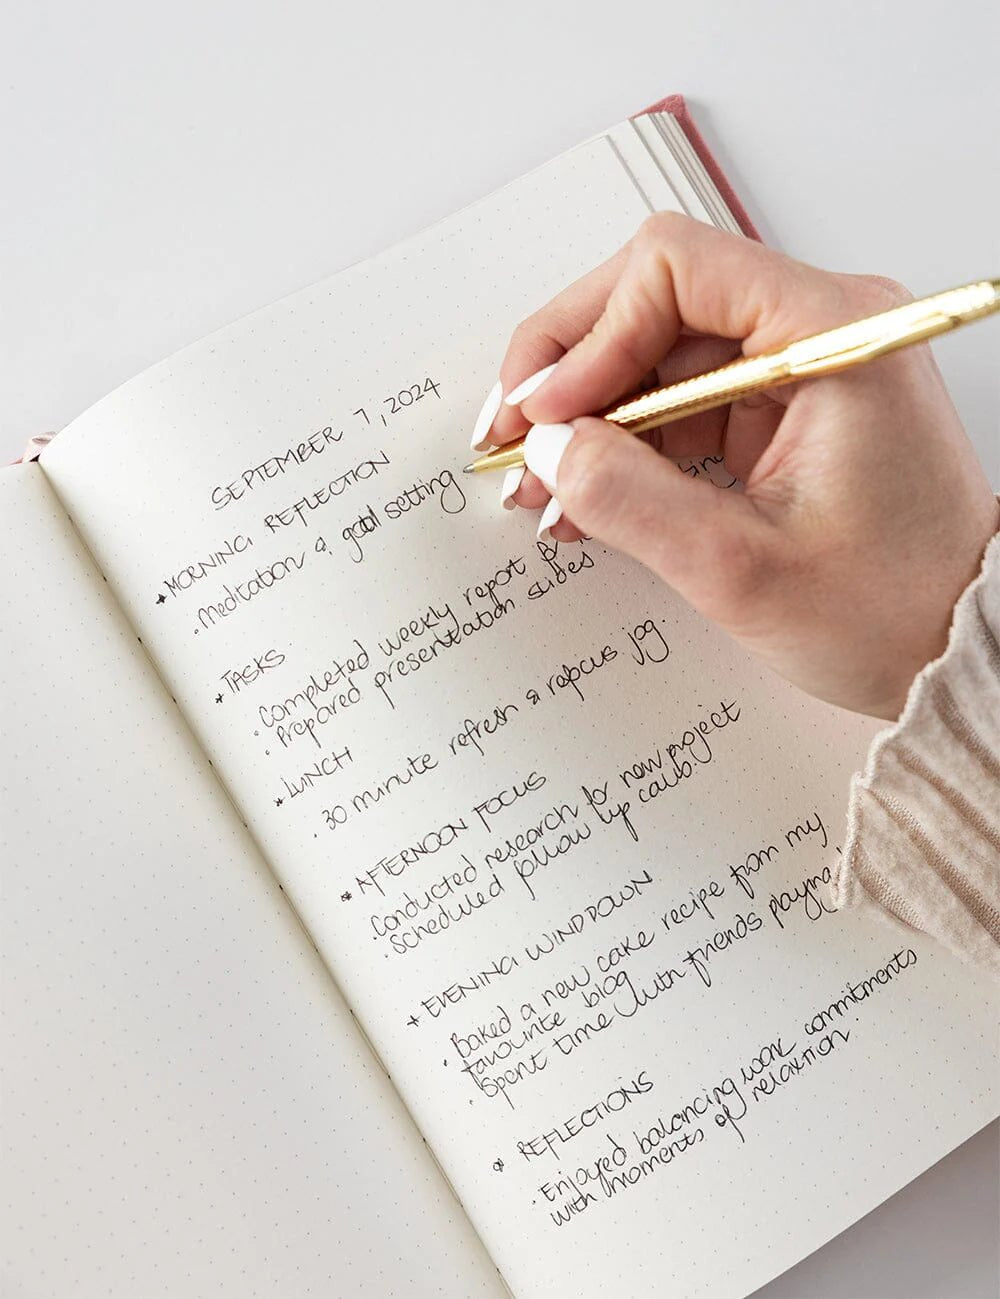 SEPTEMBER 7, 2024
MORNING REFLECTION
Meditation & goal setting
TASKS
Completed weekly report
Prepared presentation slides
LUNCH
30 minute refresh & refocus
AFTERNOON FOCUS
Conducted research for new project
Scheduled follow up
EVENING WIND DOWN
Baked a new cake recipe from my
favourite blog
Spent time with friends
REFLECTIONS
Enjoyed balancing work commitments
with moments of relaxtion